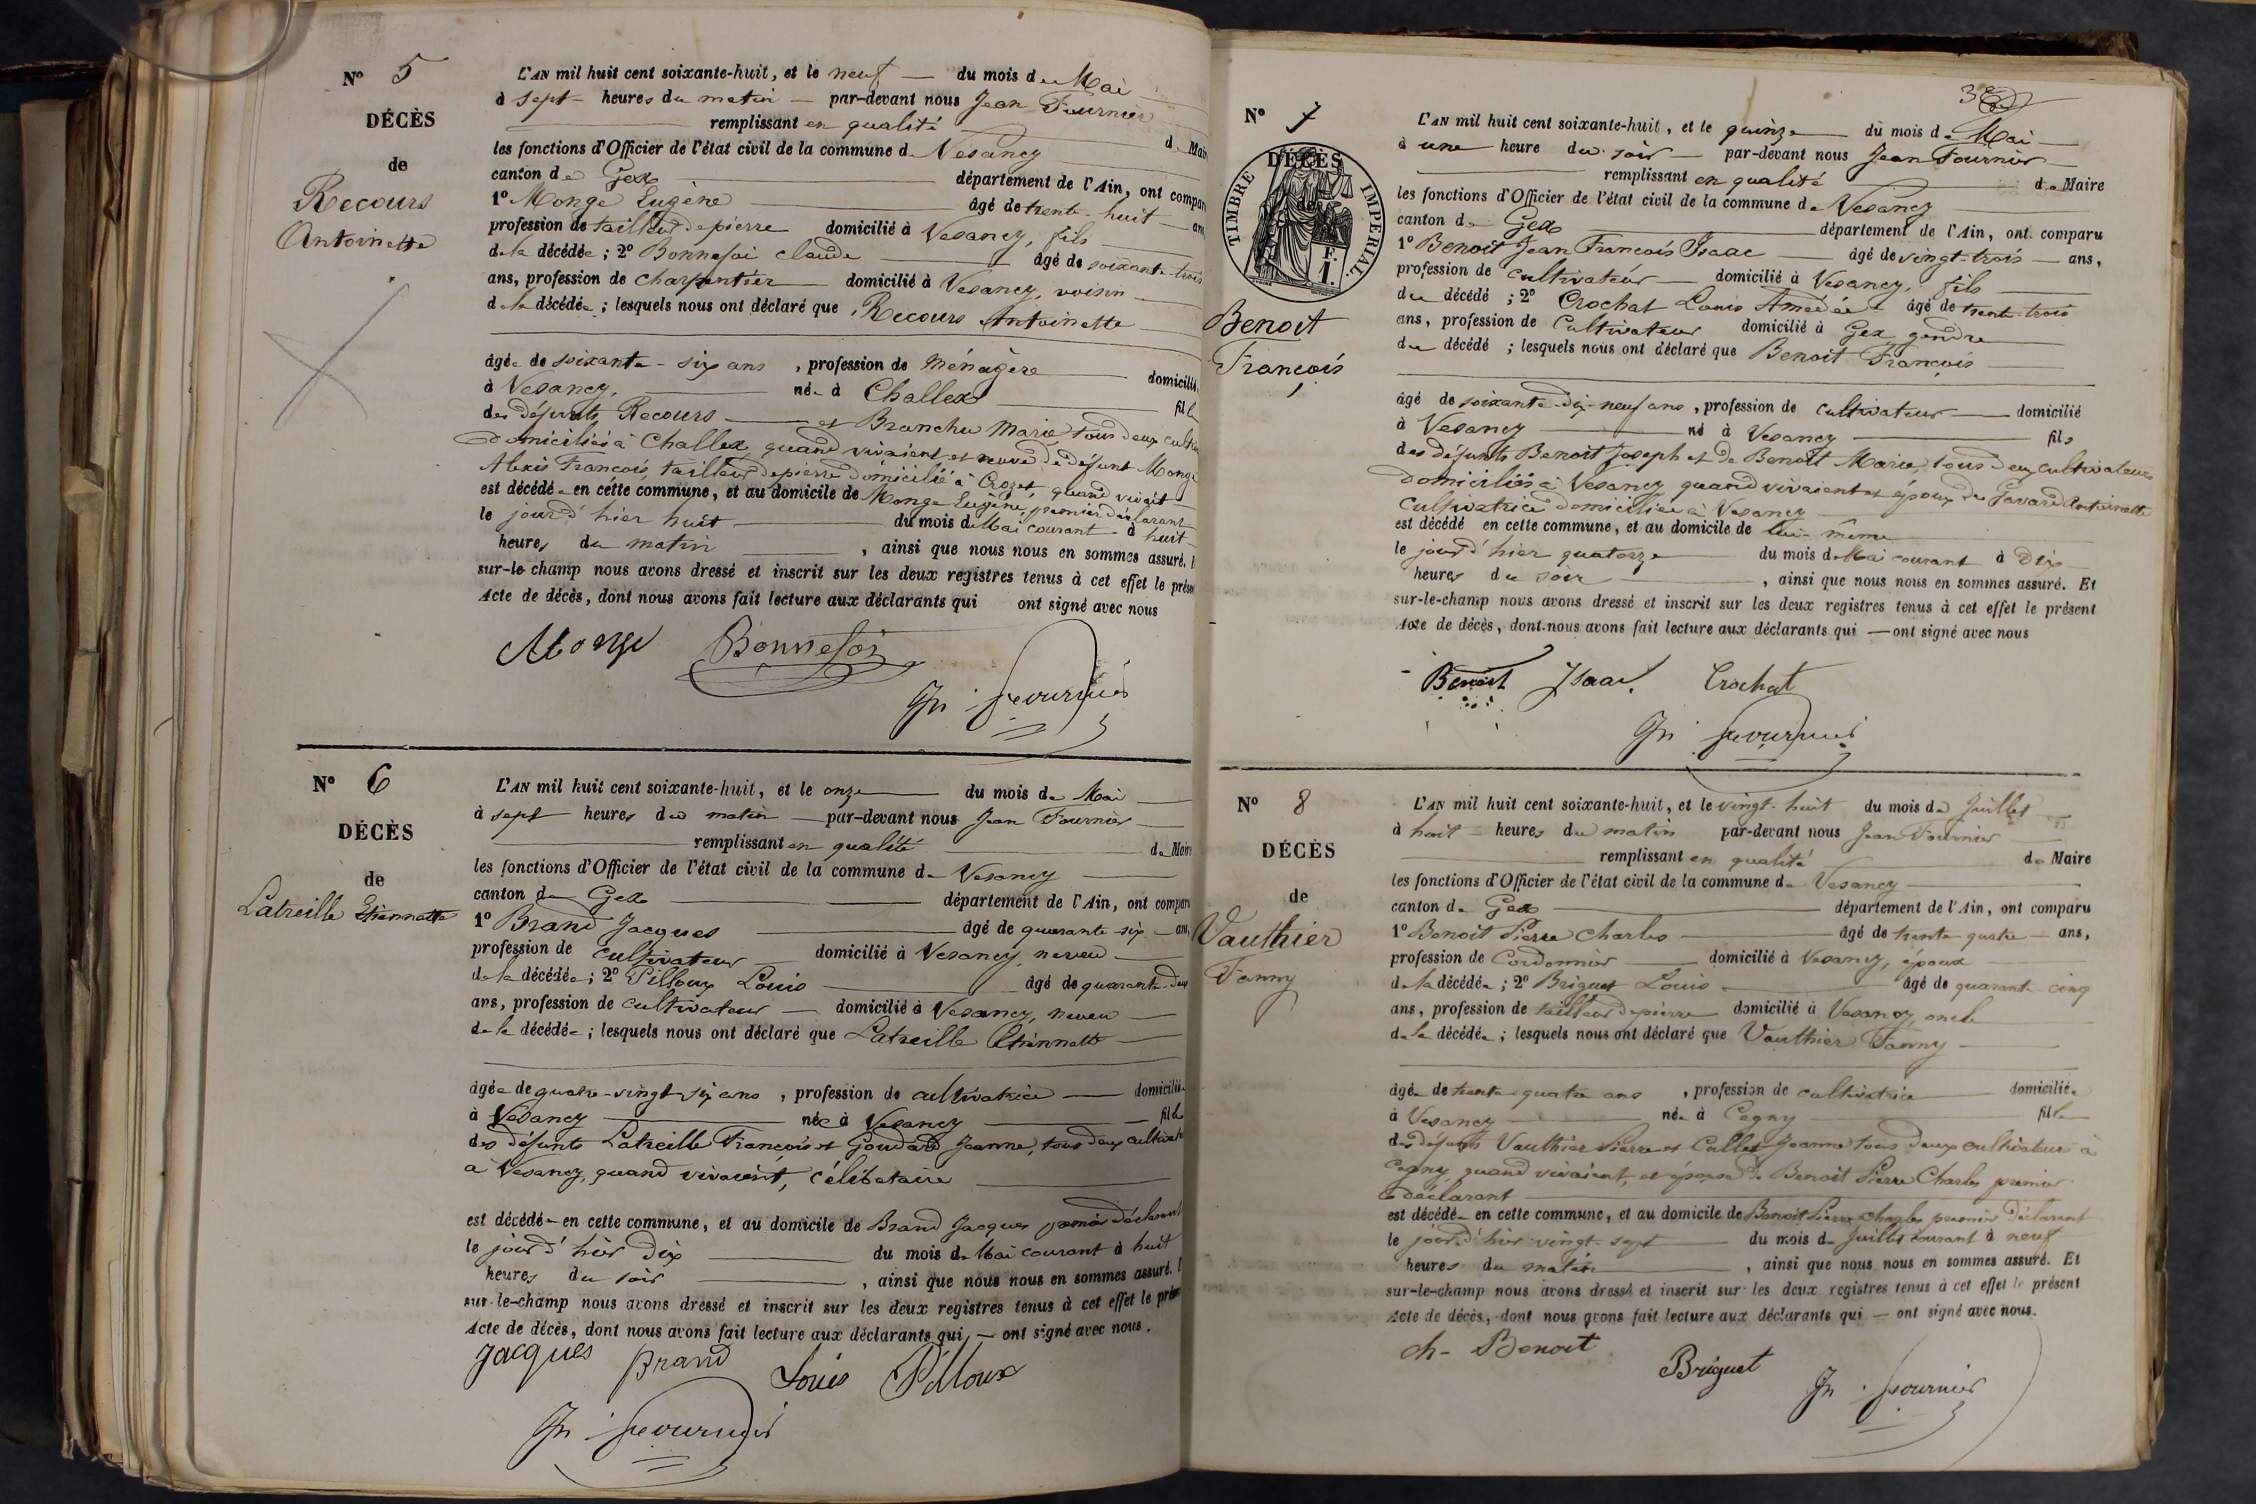 N° 5
DÉCÈS
de
Recours
Antoinette
L'AN mil huit cent soixante-huit, et le neuf du mois de Mai
à sept heures du matin par-devant nous Jean Fournier
remplissant en qualité de Maire
les fonctions d'Officier de l'état civil de la commune de Vesancy
canton de Gex département de l'Ain, ont compar
1° Monge Eugène âgé de trente-huit ans
profession de tailleur de pierre domicilié à Vesancy, fils
de la décédée ; 2° Bonnefoi Claude âgé de soixante-trois
ans, profession de charpentier domicilié à Vesancy, voisin
de la décédée ; lesquels nous ont déclaré que Recours Antoinette
âgée de soixante-six ans, profession de ménagère domicilié
à Vesancy, née à Challex fille
des défunts Recours et Branchu Marie, tous deux cultiv
domiciliés à Challex, quand vivaient et veuve de défunt Monge
Alexis François, tailleur de pierre domicilié à Crozet, quand vivait
est décédée en cette commune, et au domicile de Monge Eugène, premier déclarant
le jour d'hier huit du mois de Mai courant à huit
heures du matin, ainsi que nous nous en sommes assuré.
sur-le-champ nous avons dressé et inscrit sur les deux registres tenus à cet effet le présen
Acte de décès, dont nous avons fait lecture aux déclarants qui ont signé avec nous
Monge Bonnefoi
Jn Fournier
N° 6
DÉCÈS
de
Latreille Etiennette
L'AN mil huit cent soixante-huit, et le onze du mois de Mai
à sept heures du matin par-devant nous Jean Fournier
remplissant en qualité de Maire
les fonctions d'Officier de l'état civil de la commune de Vesancy
canton de Gex département de l'Ain, ont comparu
1° Brand Jacques âgé de quarante-six ans,
profession de cultivateur domicilié à Vesancy, neveu
de la décédée ; 2° Pilloux Louis âgé de quarante-deux
ans, profession de cultivateur domicilié à Vesancy, neveu
de la décédée ; lesquels nous ont déclaré que Latreille Etiennette
âgée de quatre-vingt-six ans, profession de cultivatrice domiciliée
à Vesancy née à Vesancy fille
des défunts Latreille François et Goudard Jeanne, tous deux cultivat
à Vesancy, quand vivaient, célibataire
est décédée en cette commune, et au domicile de Brand Jacques premier déclarant
le jour d'hier dix du mois de Mai courant à huit
heures du soir, ainsi que nous nous en sommes assuré.
sur-le-champ nous avons dressé et inscrit sur les deux registres tenus à cet effet le prése
Acte de décès, dont nous avons fait lecture aux déclarants qui ont signé avec nous.
Jacques Brand Louis Pilloux
Jn Fournier
N° 7
DÉCÈS
de
TIMBRE IMPÉRIAL
Benoit
François
L'AN mil huit cent soixante-huit, et le quinze du mois de Mai
à une heure du soir par-devant nous Jean Fournier
remplissant en qualité de Maire
les fonctions d'Officier de l'état civil de la commune de Vesancy
canton de Gex département de l'Ain, ont comparu
1° Benoit Jean François Isaac âgé de vingt-trois ans,
profession de cultivateur domicilié à Vesancy, fils
du décédé ; 2° Crochat Louis Amédée âgé de trente-trois
ans, profession de cultivateur domicilié à Gex, gendre
du décédé ; lesquels nous ont déclaré que Benoit François
âgé de soixante-dix-neuf ans, profession de cultivateur domicilié
à Vesancy né à Vesancy fils
des défunts Benoit Joseph et de Benoit Marie, tous deux cultivateurs
domiciliés à Vesancy quand vivaient et époux de Gavard Antoinette
cultivatrice domiciliée à Vesancy
est décédé en cette commune, et au domicile de lui-même
le jour d'hier quatorze du mois de Mai courant à dix
heures du soir, ainsi que nous nous en sommes assuré. Et
sur-le-champ nous avons dressé et inscrit sur les deux registres tenus à cet effet le présent
Acte de décès, dont nous avons fait lecture aux déclarants qui ont signé avec nous
Benoit Isaac Crochat
Jn Fournier
N° 8
DÉCÈS
de
Vauthier
Fanny
L'AN mil huit cent soixante-huit, et le vingt-huit du mois de Juillet
à huit heures du matin par-devant nous Jean Fournier
remplissant en qualité de Maire
les fonctions d'Officier de l'état civil de la commune de Vesancy
canton de Gex département de l'Ain, ont comparu
1° Benoit Pierre Charles âgé de trente-quatre ans,
profession de Cordonnier domicilié à Vesancy, époux
de la décédée ; 2° Briguet Louis âgé de quarante cinq
ans, profession de tailleur de pierre domicilié à Vesancy, oncle
de la décédée ; lesquels nous ont déclaré que Vauthier Fanny
âgée de trente-quatre ans, profession de cultivatrice domiciliée
à Vesancy née à Cegny fille
des défunts Vauthier Pierre et Cullet Jeanne tous deux cultivateurs à
Cegny, quand vivaient, et épouse de Benoit Pierre Charles premier
déclarant
est décédée en cette commune, et au domicile de Benoit Pierre Charles premier déclarant
le jour d'hier vingt-sept du mois de Juillet courant à neuf
heures du matin, ainsi que nous nous en sommes assuré. Et
sur-le-champ nous avons dressé et inscrit sur les deux registres tenus à cet effet le présent
Acte de décès, dont nous avons fait lecture aux déclarants qui ont signé avec nous.
Ch- Benoit
Briguet
Jn Fournier